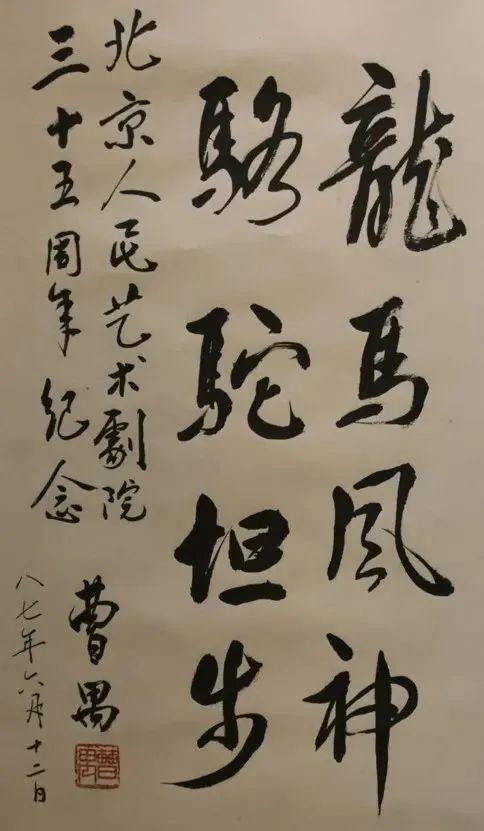 龍馬風神
駱駝坦步
北京人民艺术劇院
三十五周年纪念
曹禺
八七年六月十二日
曹禺